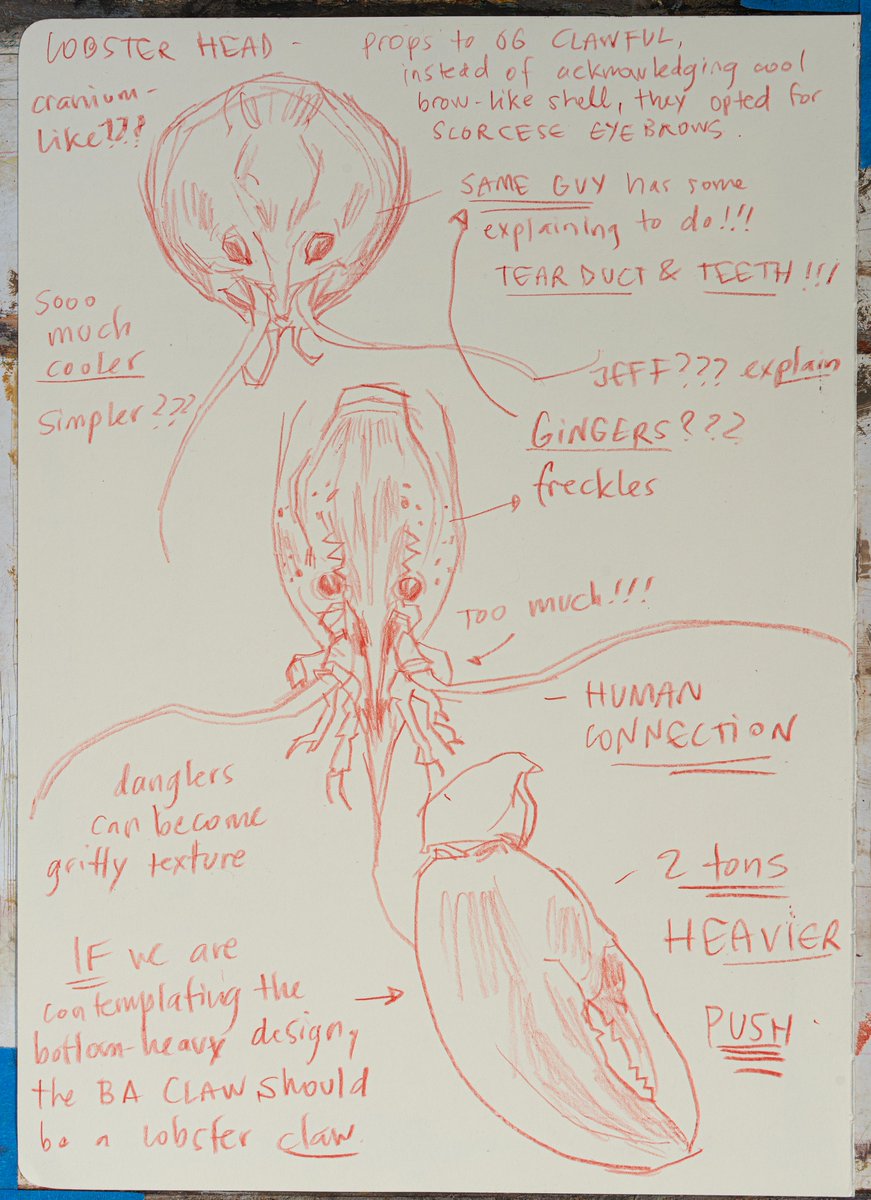 LOBSTER HEAD -
props to OG CLAWFUL,
instead of acknowledging cool
brow-like shell, they opted for
SCORCESE EYEBROWS.
cranium-
like???
SAME GUY has some
explaining to do!!!
TEAR DUCT & TEETH!!!
Sooo
much
cooler
simpler???
JEFF??? explain
GINGERS???
freckles
TOO much!!!
- HUMAN
CONNECTION
danglers
can become
gritty texture
- 2 tons
HEAVIER
PUSH
IF we are
contemplating the
bottom-heavy design,
the BA CLAW should
be a lobster claw.